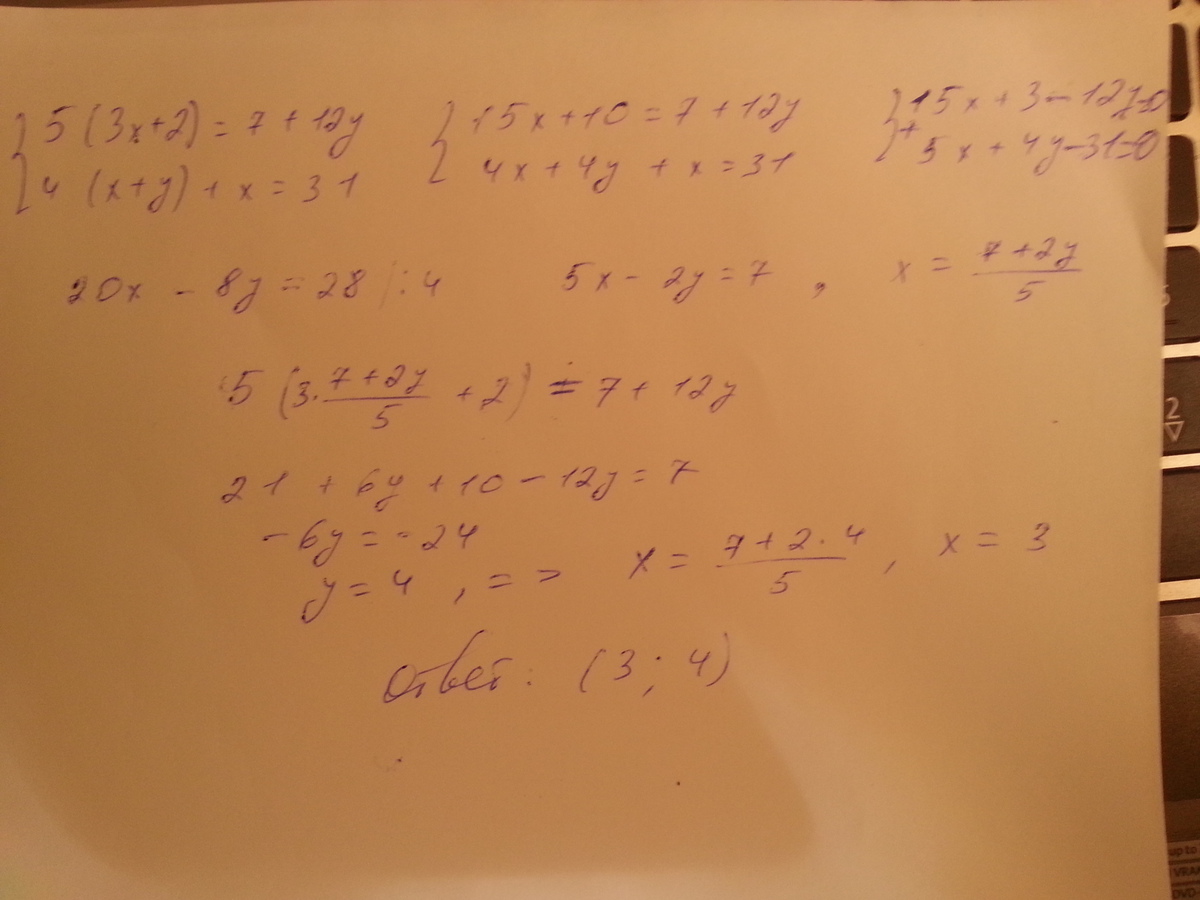 { 5 (3x+2) = 7 + 12y { 15x + 10 = 7 + 12y { 15x + 3 - 12y = 0
4 (x+y) + x = 31 4x + 4y + x = 31 + 5x + 4y - 31 = 0
20x - 8y = 28 | : 4 5x - 2y = 7 , x = (7 + 2y)/5
5 (3 · (7 + 2y)/5 + 2) = 7 + 12y
21 + 6y + 10 - 12y = 7
- 6y = - 24
y = 4 , => x = (7 + 2 · 4)/5 , x = 3
Ответ: (3; 4)
2
up to
VRA
DVD